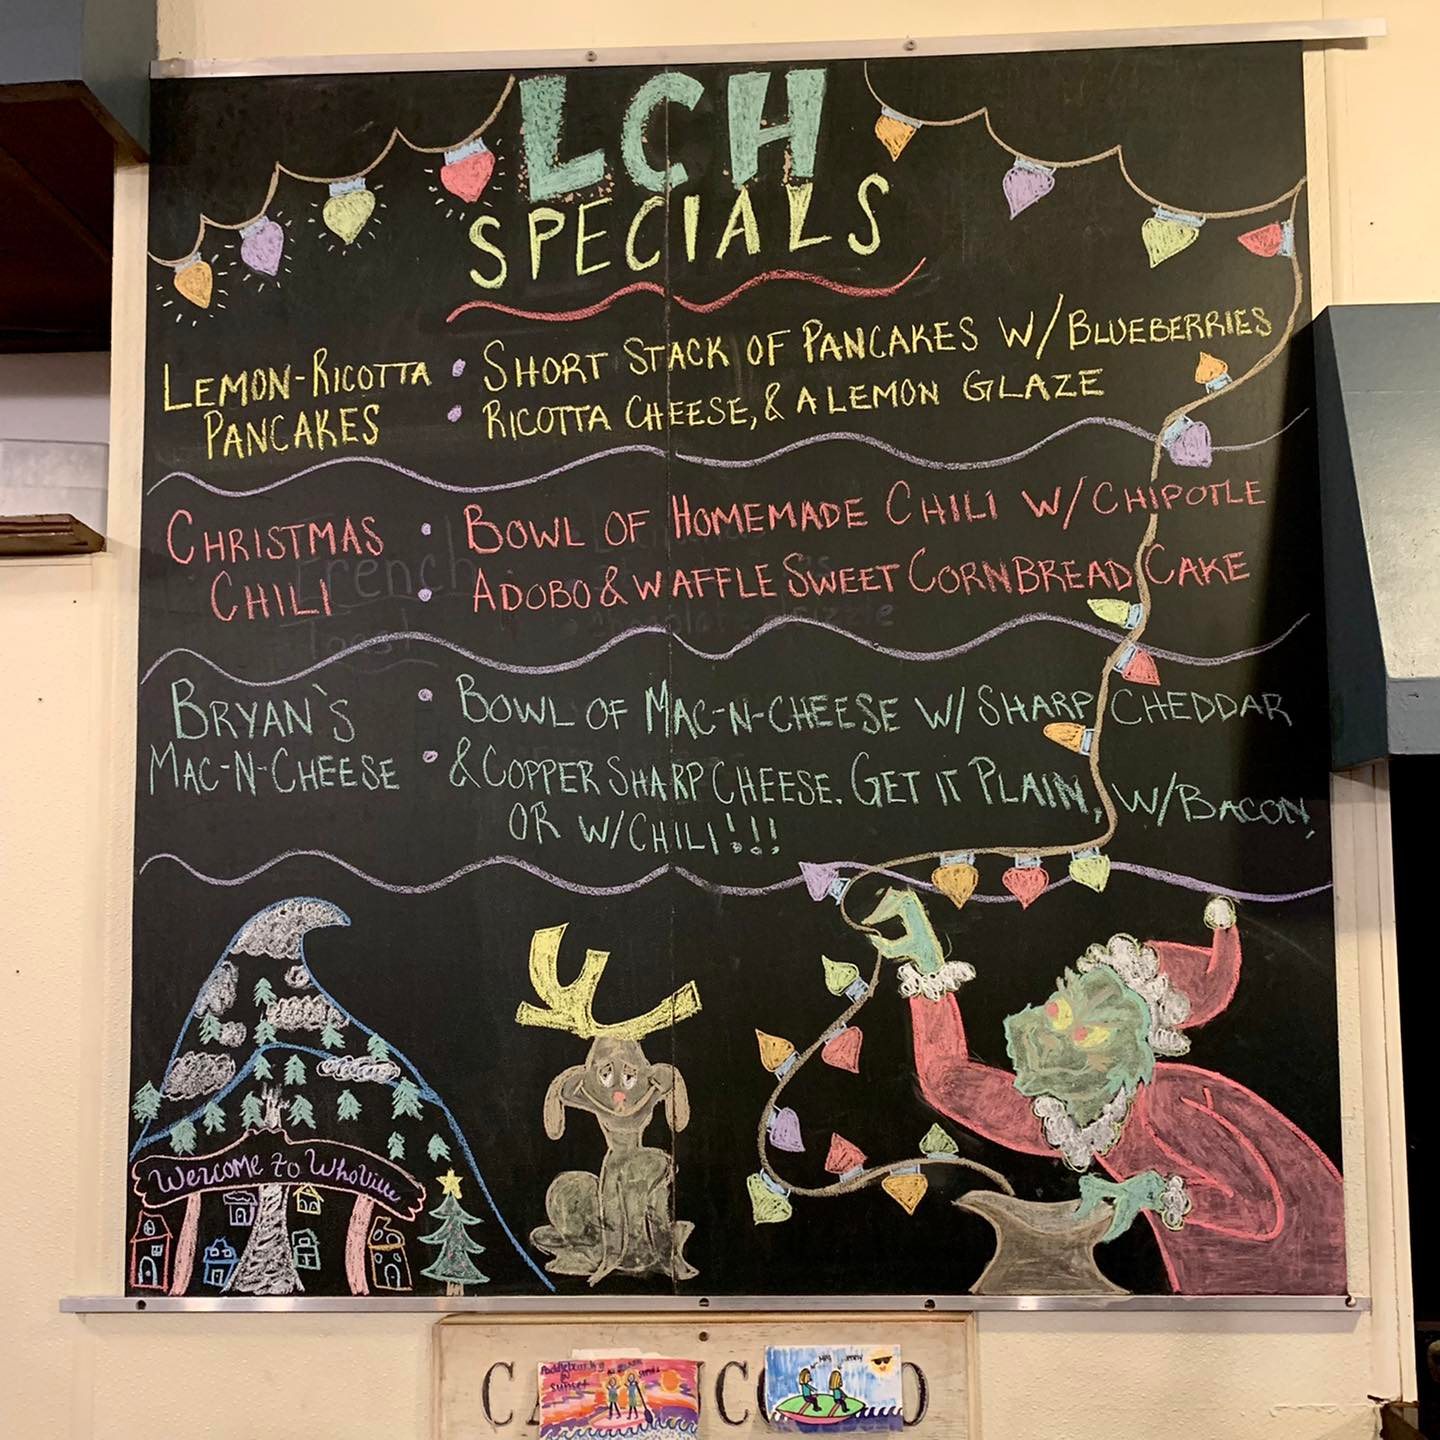 LCH
SPECIALS
LEMON-RICOTTA
PANCAKES
• SHORT STACK OF PANCAKES W/ BLUEBERRIES
• RICOTTA CHEESE, & A LEMON GLAZE
CHRISTMAS
CHILI
• BOWL OF HOMEMADE CHILI W/ CHIPOTLE
• ADOBO & WAFFLE SWEET CORNBREAD CAKE
French
Toast
BRYAN`S
MAC-N-CHEESE
• BOWL OF MAC-N-CHEESE W/ SHARP CHEDDAR
• & COPPER SHARP CHEESE. GET IT PLAIN, W/ BACON,
OR W/ CHILI!!!
Welcome to WhoVille
Paddleboarding
Sunset